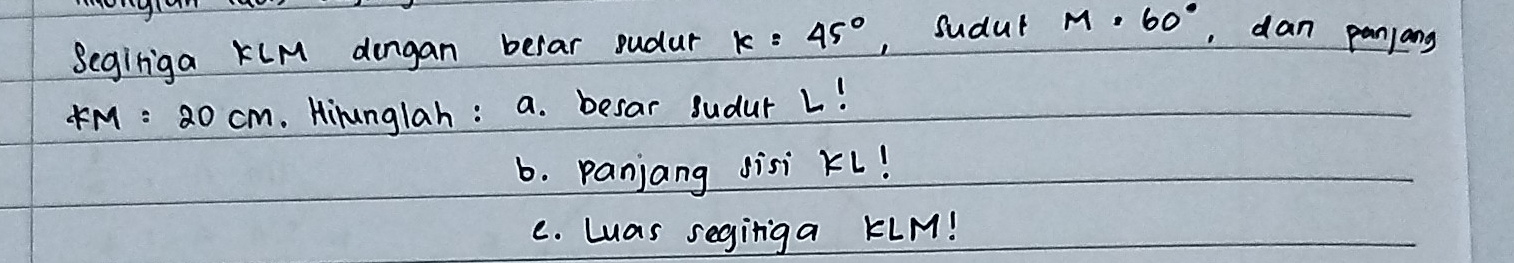 Segitiga KLM dengan besar sudut K = 45°, sudut M = 60°, dan panjang
KM = 20 cm. Hitunglah : a. besar sudut L!
b. panjang sisi KL!
c. Luas segitiga KLM!